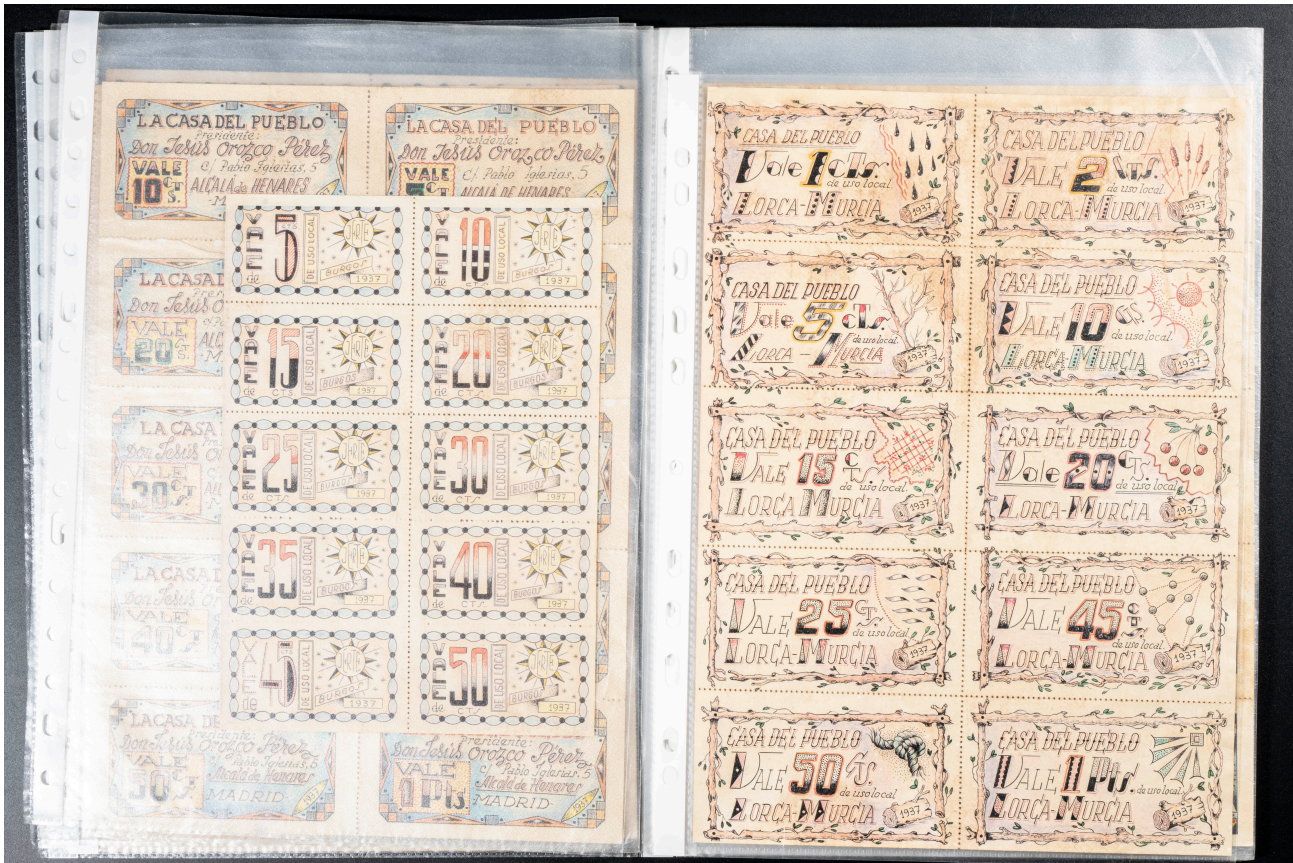 LA CASA DEL PUEBLO
Presidente:
Don Jesús Orozco Pérez
C/ Pablo Iglesias, 5
VALE
10 CTS.
ALCALÁ de HENARES
LA CASA DEL PUEBLO
Presidente:
Don Jesús Orozco Pérez
C/. Pablo Iglesias, 5
VALE
5 CT
ALCALÁ DE HENARES
LA CASA
Don Jesús O
VALE
20 CTS.
LA CASA
Don Jesús
VALE
30 CTS
LA CASA
Don Jesús Or
VALE
40 CT
LA CASA DE
Presidente:
Don Jesús Orozco Pérez
Pablo Iglesias, 5
VALE
50 CTS
Alcalá de Henares
MADRID
1937
Presidente:
Don Jesús Orozco Pérez
C/ Pablo Iglesias, 5
VALE
1 Pts.
Alcalá de Henares
MADRID-
1937
VALE de 5 CTS
DE USO LOCAL
BURGOS
1937
VALE de 10
DE USO LOCAL
BURGOS
1937
VALE de 15 CTS
DE USO LOCAL
BURGOS
1937
VALE de 20 CTS
DE USO LOCAL
BURGOS
1937
VALE de 25 CTS.
DE USO LOCAL
BURGOS
1937
VALE de 30 CTS.
DE USO LOCAL
BURGOS
1937
VALE de 35 CTS
DE USO LOCAL
BURGOS
1937
VALE de 40 CTS.
DE USO LOCAL
BURGOS
1937
VALE de 45 CTS
DE USO LOCAL
BURGOS
1937
VALE de 50 CTS.
DE USO LOCAL
BURGOS
1937
CASA DEL PUEBLO
Vale 1 cTs.
de uso local.
LORCA-MURCIA
1937
CASA DEL PUEBLO
VALE 2 CTS.
de uso local.
LORCA-MURCIA
1937
CASA DEL PUEBLO
Vale 5 cTs.
de uso local.
LORCA - MURCIA
1937
CASA DEL PUEBLO
VALE 10 CTS.
de uso local.
LORCA-MURCIA
1937
CASA DEL PUEBLO
VALE 15 CTS.
de uso local.
LORCA MURCIA
1937
CASA DEL PUEBLO
Vale 20 CTS.
de uso local.
LORCA-MURCIA
1937
CASA DEL PUEBLO
VALE 25 CTS.
de uso local.
LORCA-MURCIA
1937
CASA DEL PUEBLO
VALE 45 CTS.
de uso local.
LORCA-MURCIA
1937
CASA DEL PUEBLO
VALE 50 CTS.
de uso local.
LORCA-MURCIA
1937
CASA DEL PUEBLO
VALE 1 Pts.
de uso local.
LORCA-MURCIA
1937